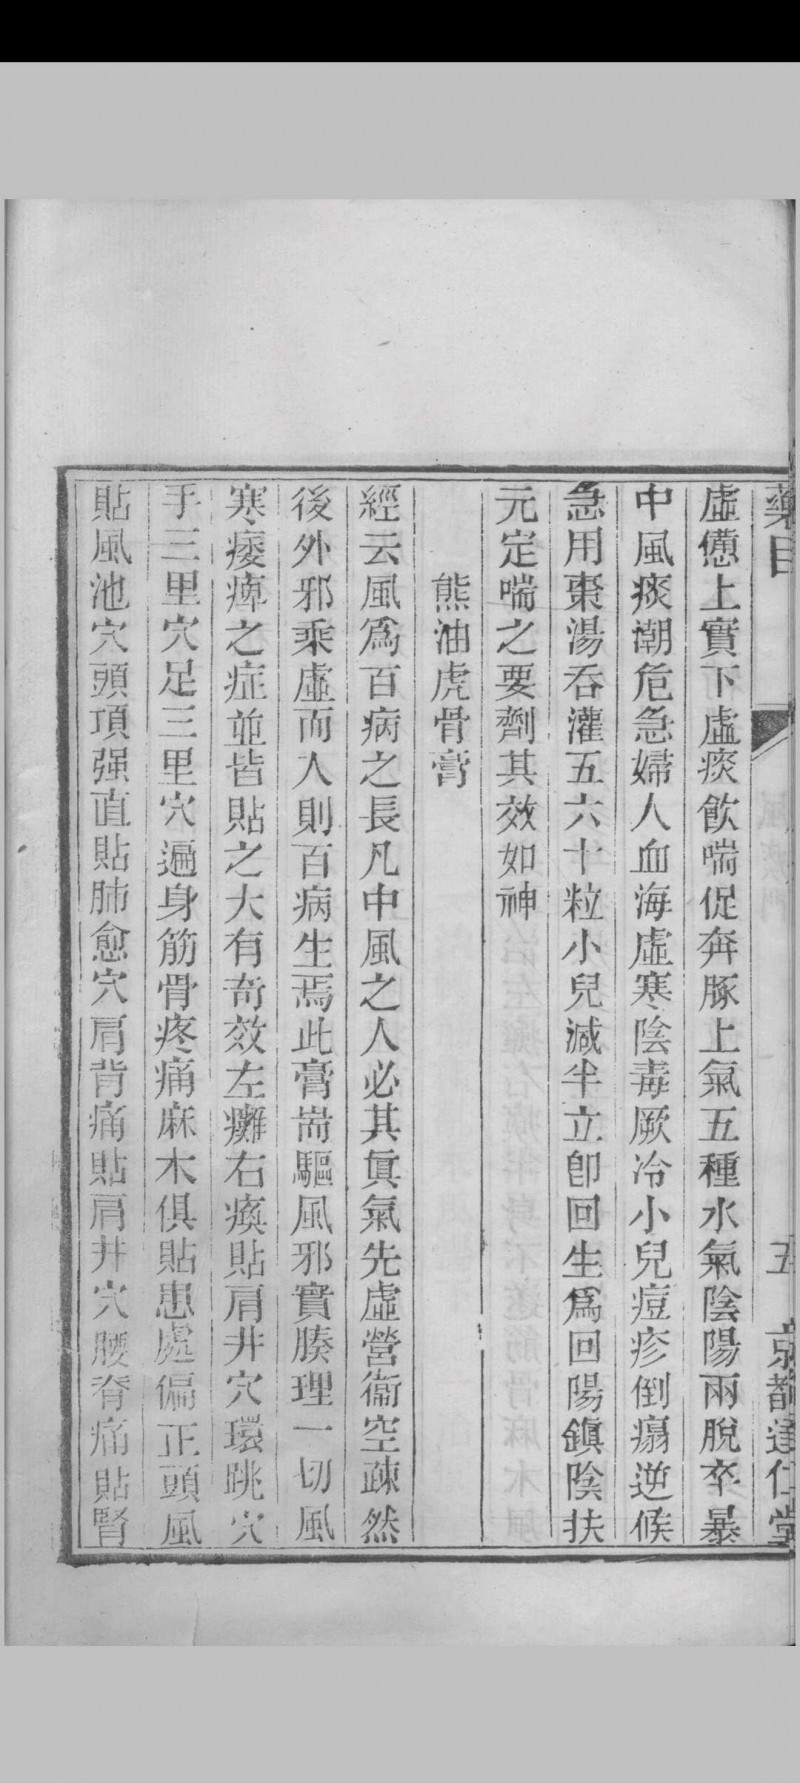 藥目
五
京都達仁堂
虛憊上實下虛痰飲喘促奔豚上氣五種水氣陰陽兩脫卒暴
中風痰潮危急婦人血海虛寒陰毒厥冷小兒痘疹倒瘍逆候
急用棗湯吞灌五六十粒小兒減半立卽回生爲回陽鎮陰扶
元定喘之要劑其效如神
熊油虎骨膏
經云風爲百病之長凡中風之人必其眞氣先虛營衞空疎然
後外邪乘虛而入則百病生焉此膏耑驅風邪實腠理一切風
寒痿痺之症並皆貼之大有奇效左癱右瘓貼肩井穴環跳穴
手三里穴足三里穴遍身筋骨疼痛麻木俱貼患處偏正頭風
貼風池穴頭項强直貼肺愈穴肩背痛貼肩井穴腰脊痛貼腎